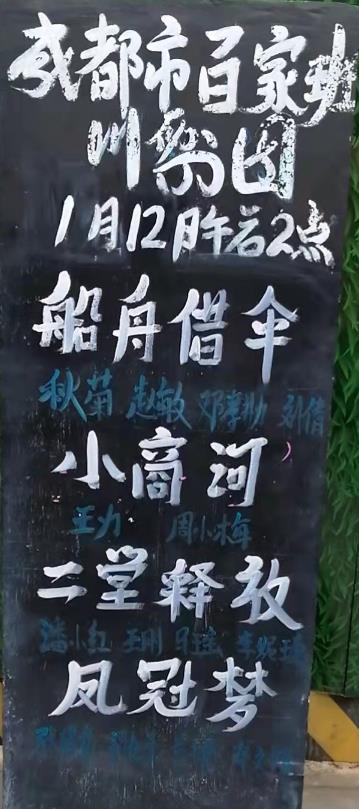 成都市百家班
川剧团
1月12日午后2点
船舟借伞
秋菊 赵敏 邓李勋 刘倩
小商河
王力 周小梅
二堂释放
潘小红 王刚
凤冠梦